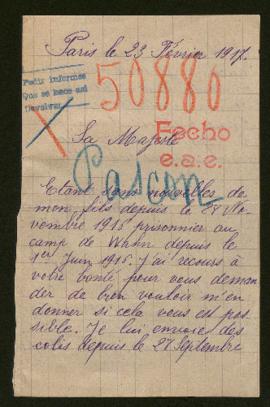 Paris le 23 Février 1917.
Pedir informes
Que se hace así
Devolver
50880
Sa Majesté
Fecho
e.a.e.
Pascon
Etant sans nouvelles de
mon fils depuis le 28 No-
vembre 1916 prisonnier au
camp de Wahn depuis le
1er Juin 1915. J'ai recours à
votre bonté pour vous deman
der de bien vouloir m'en
donner si cela vous est pos
sible. Je lui envoie des
colis depuis le 27 Septembre